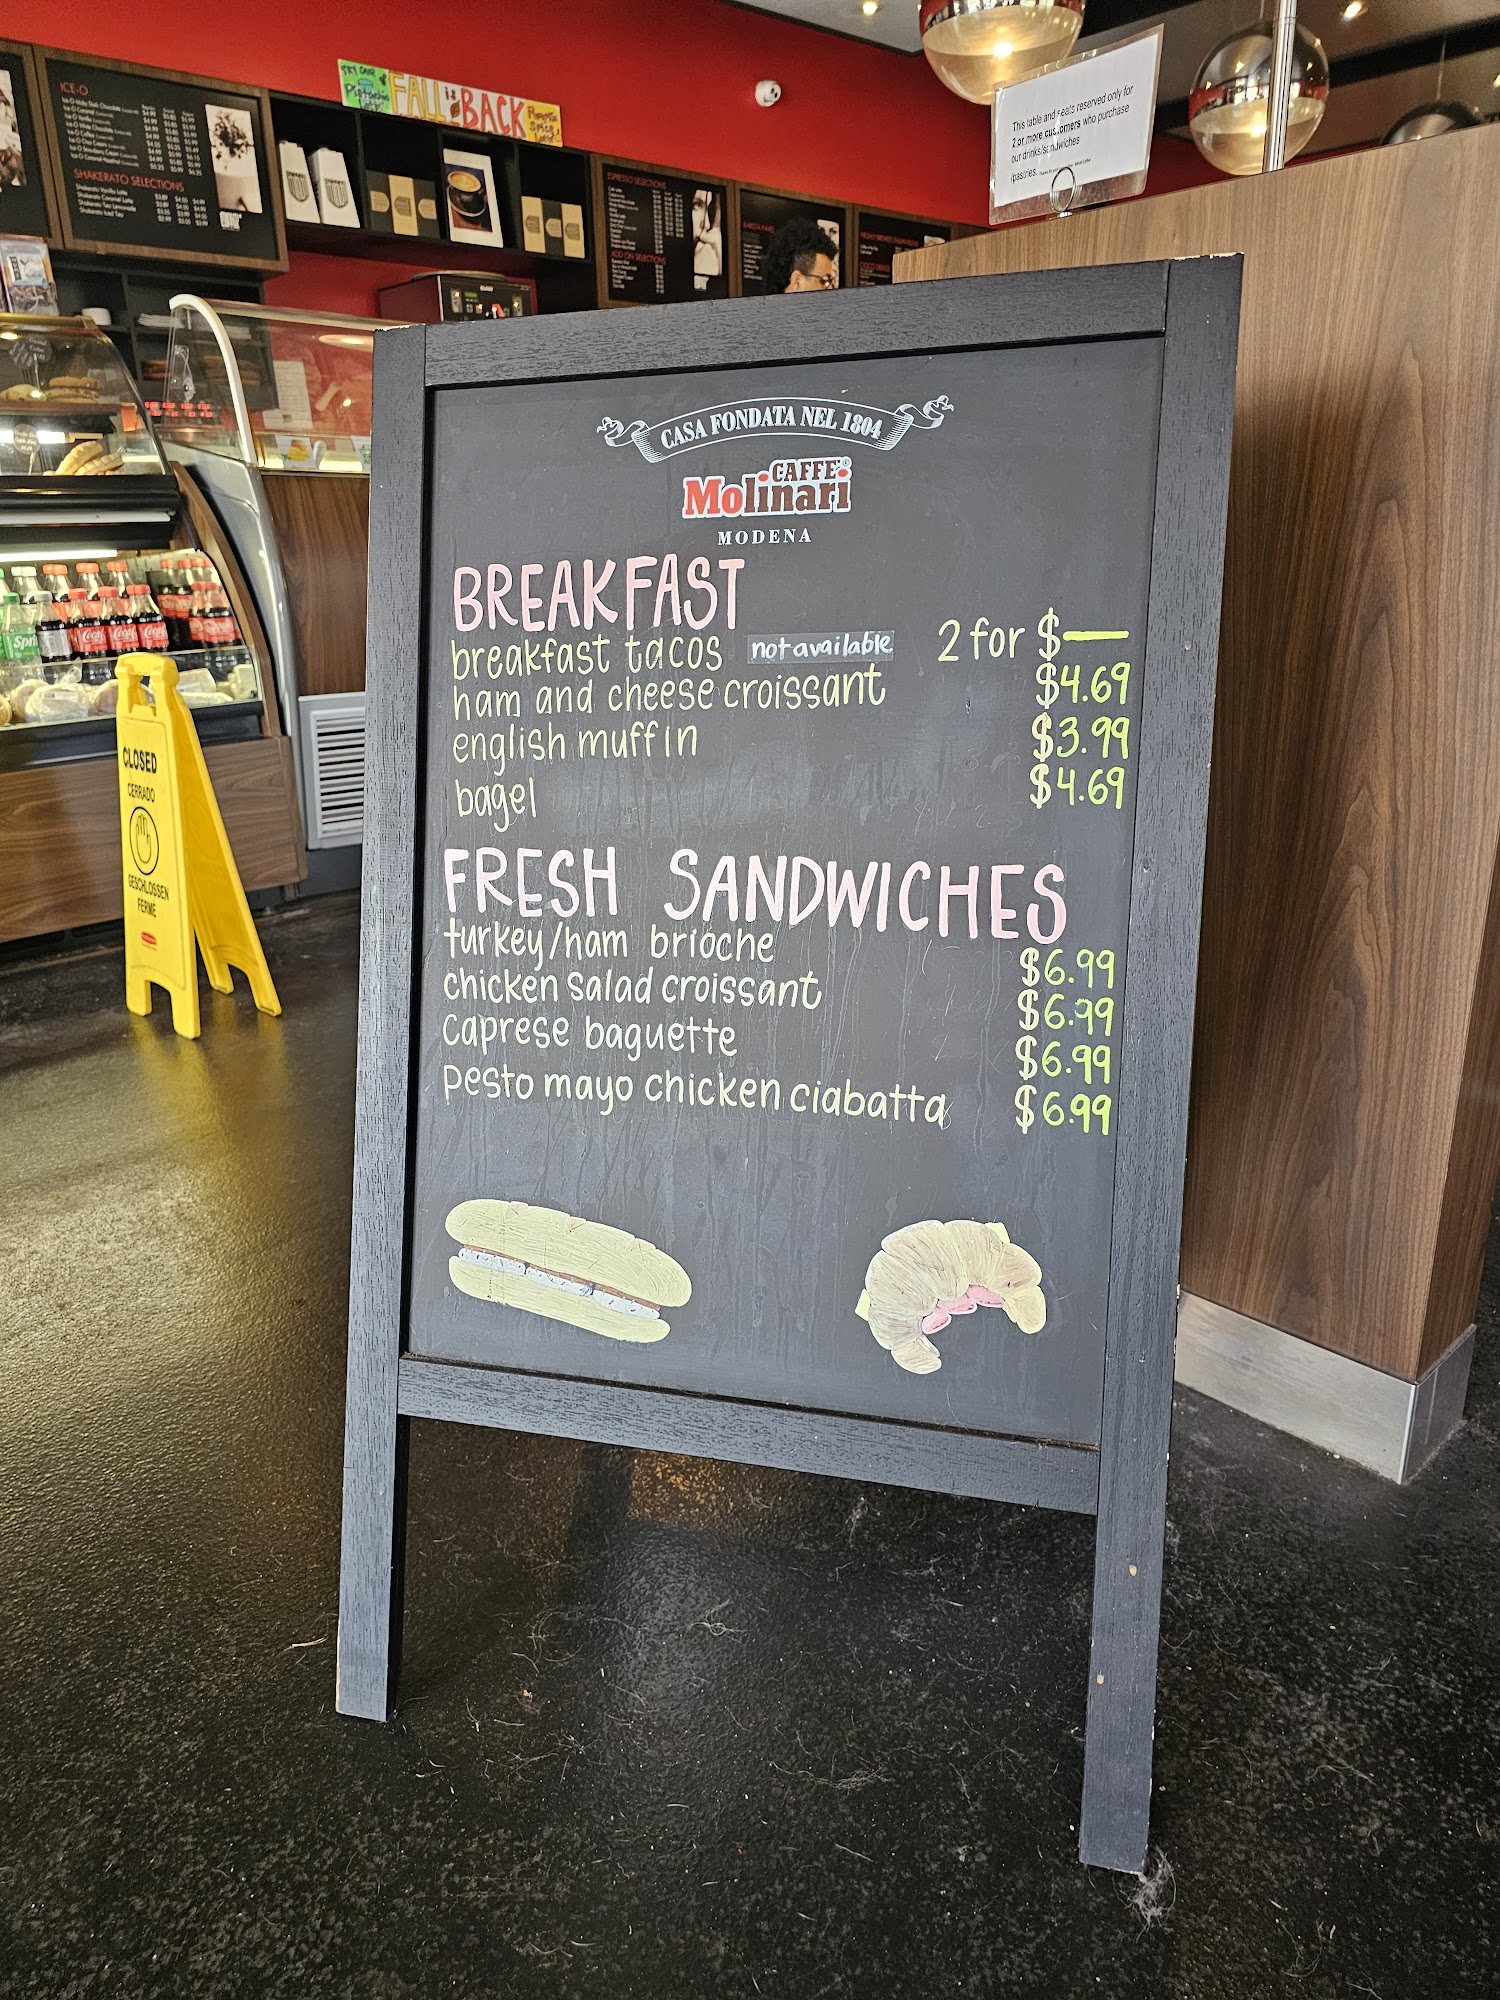 TRY OUR
Pistachio
FALL is BACK
Pumpkin
Spice
ICE-O
SHAKERATO SELECTIONS
Shakerato Vanilla Latte
Shakerato Caramel Latte
Shakerato Tea Lemonade
Shakerato Iced Tea
ESPRESSO SELECTIONS
ADD ON SELECTIONS
This table and seats reserved only for
2 or more customers who purchase
our drinks/sandwiches
/pastries.
CASA FONDATA NEL 1804
CAFFÈ
Molinari
MODENA
BREAKFAST
breakfast tacos not available 2 for $—
ham and cheese croissant $4.69
english muffin $3.99
bagel $4.69
FRESH SANDWICHES
turkey/ham brioche $6.99
chicken salad croissant $6.99
caprese baguette $6.99
pesto mayo chicken ciabatta $6.99
CLOSED
CERRADO
GESCHLOSSEN
FERMÉ